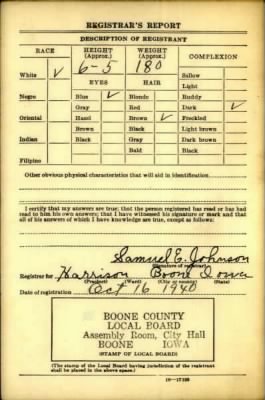 REGISTRAR'S REPORT
DESCRIPTION OF REGISTRANT
RACE HEIGHT (Approx.) WEIGHT (Approx.) COMPLEXION
White ✓ 6-5 180 Sallow
EYES HAIR Light
Negro Blue ✓ Blonde Ruddy
Gray Red Dark ✓
Oriental Hazel Brown ✓ Freckled
Brown Black Light brown
Indian Black Gray Dark brown
Bald Black
Filipino
Other obvious physical characteristics that will aid in identification
I certify that my answers are true; that the person registered has read or has had
read to him his own answers; that I have witnessed his signature or mark and that
all of his answers of which I have knowledge are true, except as follows:
Samuel E. Johnson
(Signature of registrar)
Registrar for Harrison Boone Iowa
(Precinct) (Ward) (City or county) (State)
Date of registration Oct 16 1940
BOONE COUNTY
LOCAL BOARD
Assembly Room, City Hall
BOONE IOWA
(STAMP OF LOCAL BOARD)
(The stamp of the Local Board having jurisdiction of the registrant
shall be placed in the above space.)